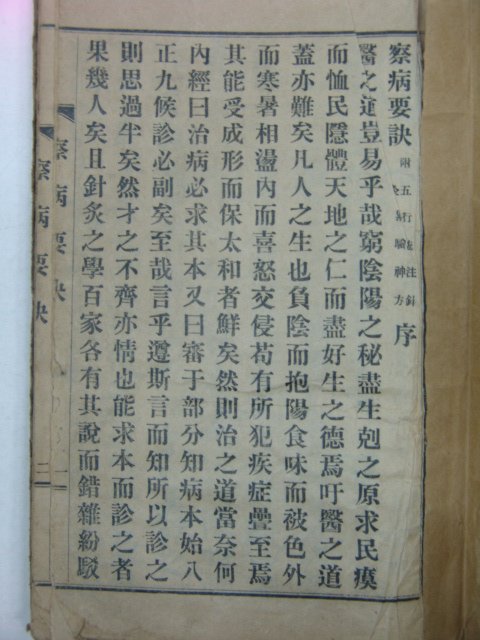 察病要訣附五行卷注針灸易驗神方序
醫之道豈易乎哉窮陰陽之秘盡生剋之原求民瘼
而恤民隱體天地之仁而盡好生之德焉吁醫之道
蓋亦難矣凡人之生也負陰而抱陽食味而被色外
而寒暑相盪內而喜怒交侵苟有所犯疾症疊至焉
其能受成形而保太和者鮮矣然則治之道當奈何
內經曰治病必求其本又曰審于部分知病本始八
正九候診必副矣至哉言乎遵斯言而知所以診之
則思過半矣然才之不齊亦情也能求本而診之者
果幾人矣且針炙之學百家各有其說而錯雜紛駁
察病要訣
二
察病要訣
一